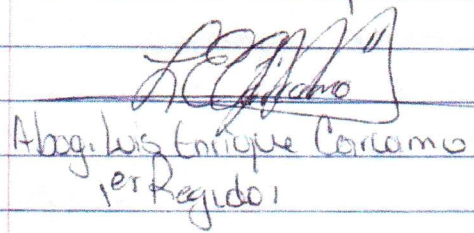 Abog. Luis Enrique Carcamo
1er Regidor